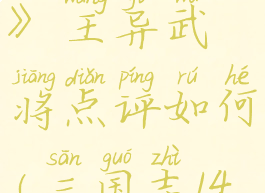 》 王异武
jiāng diǎn píng rú hé
将点评如何
sān guó zhì
（三国志14